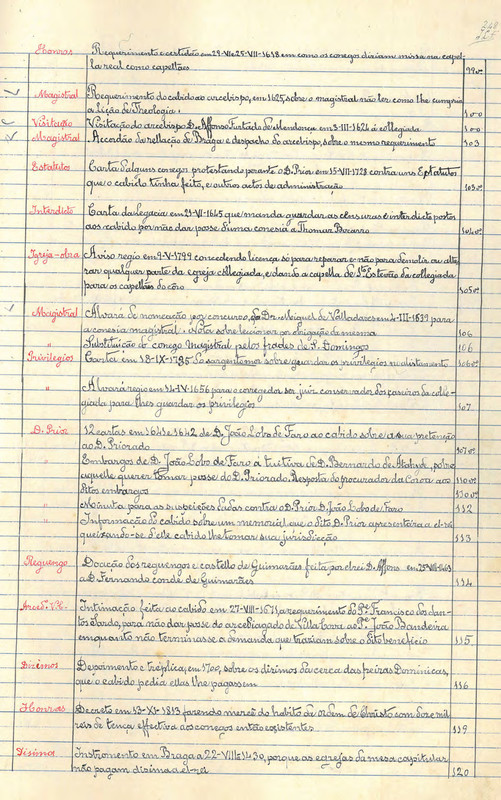 Honras Requerimento e certidão em 29-VII e 25-VII-1618 em como os conegos diziam missa na capel-
la real como capellães 99vº
Magistral Requerimento do cabido ao arcebispo, em 1625, sobre o magistral não ler como lhe cumpria
a lição de Theologia. 100
Visitação Visitação do arcebispo D. Affonso Furtado de Mendonça em 5-III-1624 á collegiada 100
Magistral Accordão da Rellação de Braga e despacho do arcebispo, sobre o mesmo requerimento 103
Estatutos Carta d'alguns conegos protestando perante o D. Prior em 15-VII-1728 contra uns Estatutos
que o cabido tinha feito, e outros actos de administração 103vº
Interdicto Carta da legacia em 21-VI-1645 que manda guardar as censuras e interdicto postos
ao cabido por não dar posse d'uma conesia a Thomaz Bocarro 104vº
Igreja-obra Aviso regio em 9-V-1799 concedendo licença só para reparar e não para demolir ou alte-
rar qualquer parte da egreja Collegiada, e dando a capella de Stº Estevão da collegiada
para os capellães do côro 105vº
Magistral Alvará de nomeação por concurso, do Dr. Miguel de Valladares em 4-III-1639 para
a conesia magistral. Notas sobre leccionar por obrigação da mesma 106
" Substituição do conego Magistral pelos frades de S. Domingos 106
Privilegios Carta em 18-IX-1785 do sargento mór sobre guardar os privilegios no alistamento 106vº
" Alvará regio em 11-IV-1656 para o corregedor ser juiz conservador dos caseiros da colle-
giada para lhes guardar os privilegios 107
D. Prior 12 cartas em 1641 e 1642 de D. João Lobo de Faro ao cabido sobre a sua pretenção
ao D. Priorado 107vº
" Embargos de D. João Lobo de Faro á tuitiva de D. Bernardo de Atahyde, sobre
aquelle querer tomar posse do D. Priorado. Resposta do procurador da Corôa aos 110vº
ditos embargos 110vº
" Minuta para as suspeições dadas contra o D. Prior D. João Lobo de Faro 112
" Informação do cabido sobre um memorial que o dito D. Prior apresentára a el-rei
queixando-se d'elle cabido lhe tomar sua jurisdicção 113
Reguengo Doação dos reguengos e castello de Guimarães feita por el rei D. Affonso em 25-VIII-
a D. Fernando conde de Guimarães 114
Arced. V. C. Intimação feita ao cabido em 27-VIII-1671, a requerimento do Pe. Francisco dos San-
tos Sardo, para não dar posse do arcediagado de Villa Cova ao Pe. João Bandeira
emquanto não terminasse a demanda que traziam sobre o dito beneficio 115
Dizimos Depoimento e tréplica, em 1700, sobre os dizimos da cerca das freiras Dominicas,
que o cabido pedia ellas lhe pagassem 116
Honras Decreto em 13-XI-1813 fazendo mercê do habito da ordem de Christo com doze mil
reis de tença effectiva aos conegos então existentes 119
Dizima Instromento em Braga a 22-VIII-1430, porque as egrejas da mesa capitular
não pagam dizima a el-rei 120